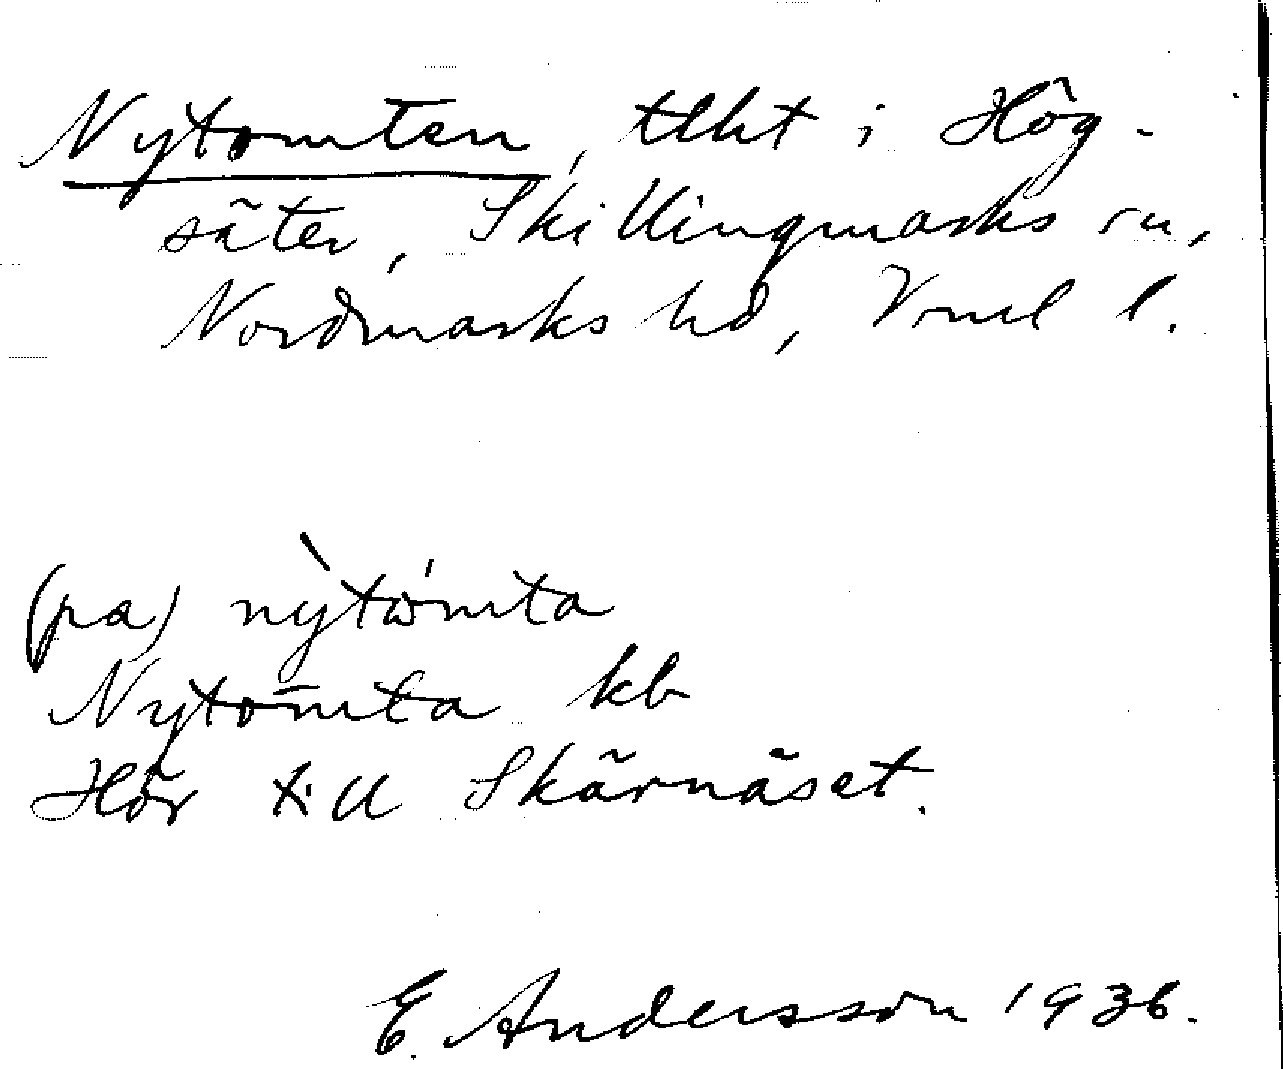 Nytomten, tlht i Hög-
säter, Skillingmarks sn,
Nordmarks hd, Vrml l.
(pa) nỳtom̍ta
Nytom̄ta kb
Hör till Skärnäset.
E. Andersson 1936.